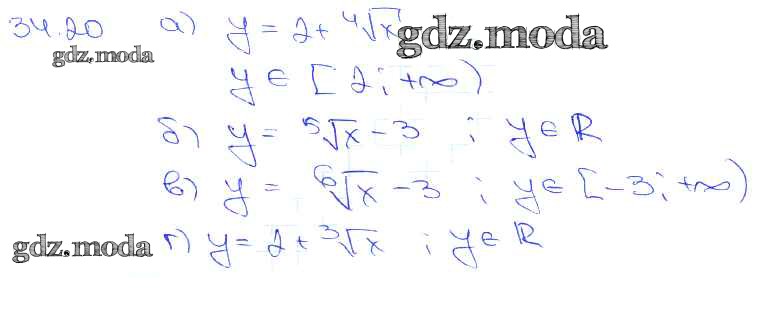 34.20 а) y = 2 + ⁴√x gdz.moda
gdz.moda y ∈ [2; +∞)
б) y = ⁵√x - 3 ; y ∈ R
в) y = ⁶√x - 3 ; y ∈ [-3; +∞)
gdz.moda г) y = 2 + ³√x ; y ∈ R